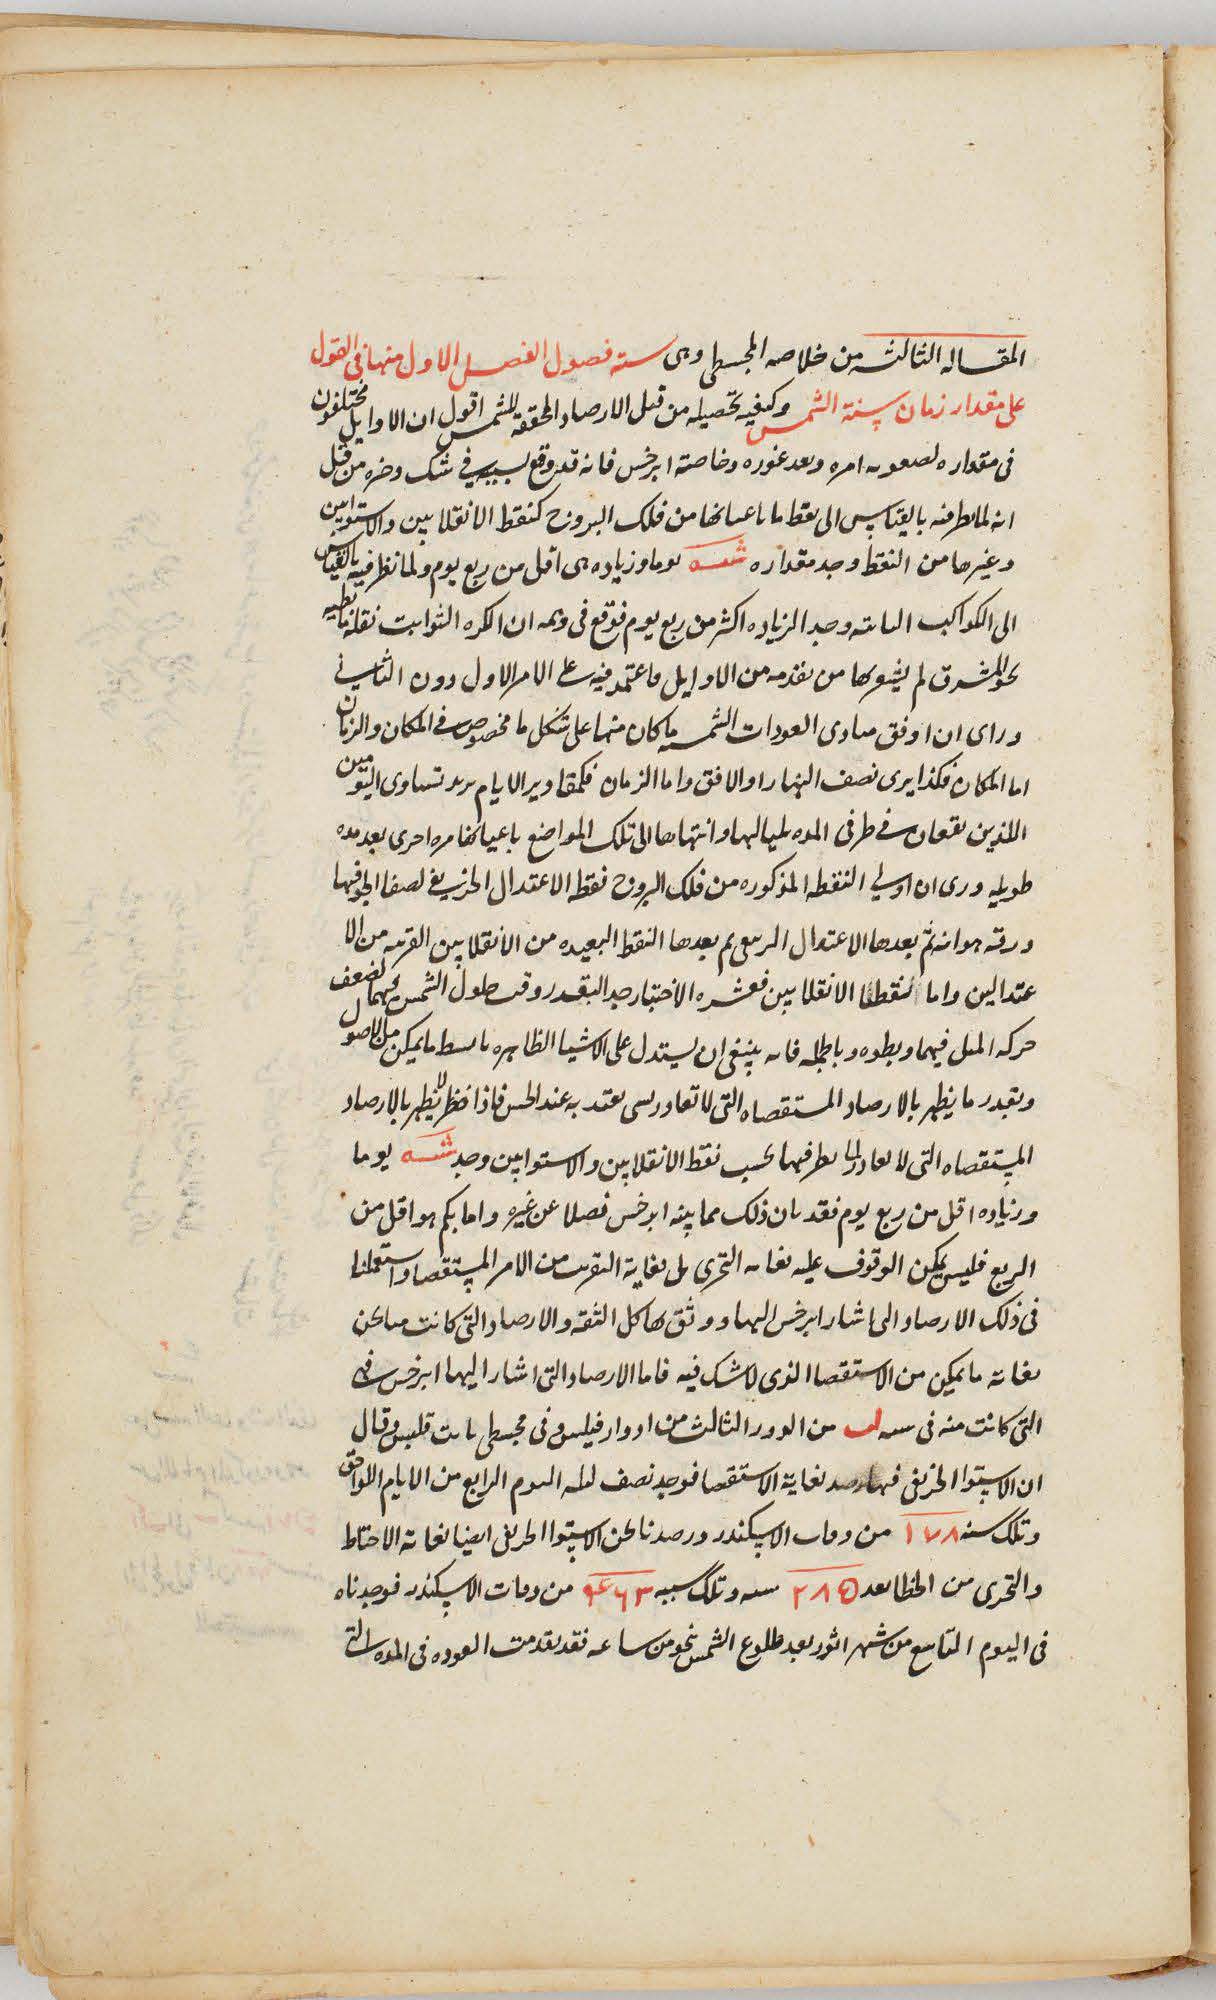 المقاله الثالثه من خلاصه المجسطى وهى سته فصول الفصل الاول منها فى القول
على مقدار زمان سنة الشمس وكيفيه تحصيله من قبل الارصاد المحققه للشمس اقول ان الاوايل مختلفون
فى مقداره لصعوبه امره وبعد غوره وخاصته ابرخس فانه قد وقع بسببه فى شك وخره من قبل
انه لما نظر فيه بالقياس الى نقط ما باعيانها من فلك البروج كنقط الانقلابين والاستوايين
وغيرها من النقط وجد مقداره شسه يوما وزياده هى اقل من ربع يوم ولما نظر فيه بالقياس
الى الكواكب الثابته وجد الزياده اكثر من ربع يوم فوقع فى وهمه ان الكره الثوابت نقله ما بطيه
نحو المشرق لم يشعر بها من تقدمه من الاوايل فاعتمد فيه على الامر الاول دون الثانى
وراى ان اوفق مبادى العودات الشمسيه ما كان منها على شكل ما مخصوص فى المكان والزمان
اما المكان فكذايرى نصف النهار او الافق واما الزمان فكمقادير الايام يريد تساوى اليومين
اللذين يقعان فى طرفى المده بلياليها وانتهاها الى تلك المواضع باعيانها مره اخرى بعد مده
طويله ورى ان اولى النقطه المذكوره من فلك البروج نقطه الاعتدال الخريفى لصفا الجو فيها
ورقه هوائه ثم بعدها الاعتدال الربيعى ثم بعدها النقط البعيده من الانقلابين القريبه من الا
عتدالين واما نقطتا الانقلابين فعشره الاختبار جدا لتقدر وقت حلول الشمس فيهما لضعف
حركه الميل فيهما وبطوه وبالجمله فانه ينبغى ان يستدل على الاشيا الظاهره بابسط ما يمكن من الاصول
وبقدر ما يظهر بالارصاد المستقصاه التى لا تغادر بسى يعتد به عند الحس فاذا نظر لا يظهر بالارصاد
المستقصاه التى لا تغادر لما نظر فيها بحسب نقط الانقلابين والاستوايين وجد شسه يوما
وزياده اقل من ربع يوم فقد بان ذلك مما بينه ابرخس فضلا عن غيره واما بكم هو اقل من
الربع فليس يمكن الوقوف عليه بغايه التحرى بل بغاية التقريب من الامر المستقصا واستعملنا
فى ذلك الارصاد التى اشار ابرخس اليها ووثق بها كل الثقه والارصاد التى كانت منا كن
بغايه ما يمكن من الاستقصا الذى لا شك فيه فاما الارصاد التى اشار اليها ابرخس فهى
التى كانت منه فى سنه لب من الدور الثالث من ادوار فيلبس وفى مجسطى بابت قلبس وقال
ان الاستوا الخريفى فيها رصد بغاية الاستقصا فوجد نصف ليله اليوم الرابع من الايام اللواحق
وتلك سنه ١٧٨ من وفات الاسكندر ورصدنا نحن الاستوا الخريفى ايضا بغايه الاحتياط
والتحرى من الخطا بعد ٢٨٥ سنه وتلك سنه ٤٦٣ من وفات الاسكندر فوجدناه
فى اليوم التاسع من شهر اثور بعد طلوع الشمس بنحو من ساعه فقد تقدمت العوده فى المده التى